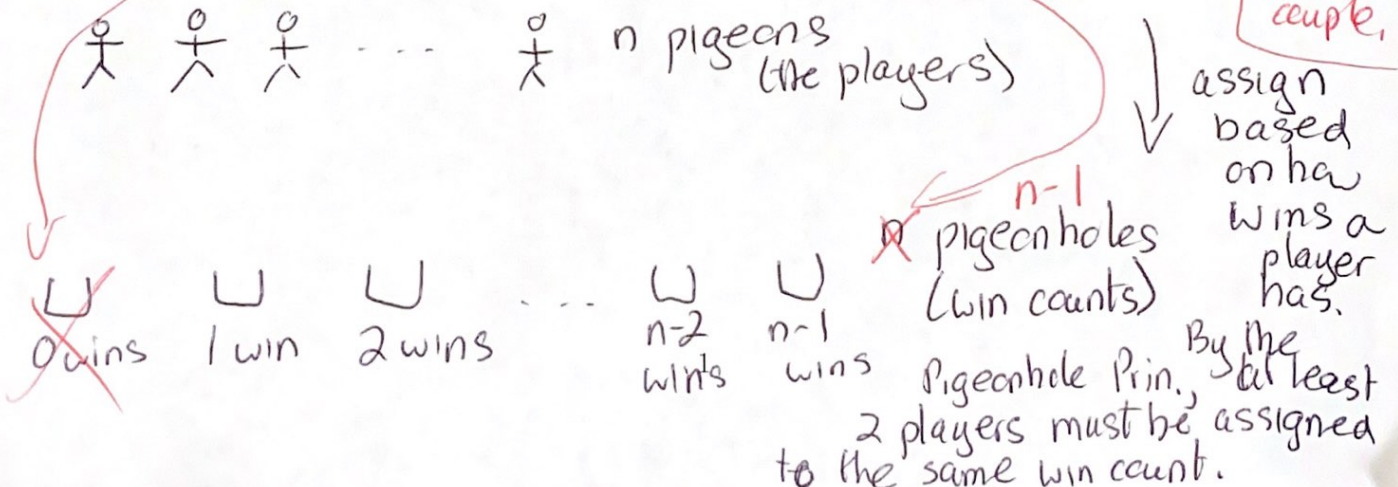 couple.
n pigeons
(the players)
assign
based
on how
wins a
player
has.
n-1
n pigeonholes
(win counts)
0 wins
1 win
2 wins
. . .
n-2
wins
n-1
wins
By the
Pigeonhole Prin., at least
2 players must be assigned
to the same win count.